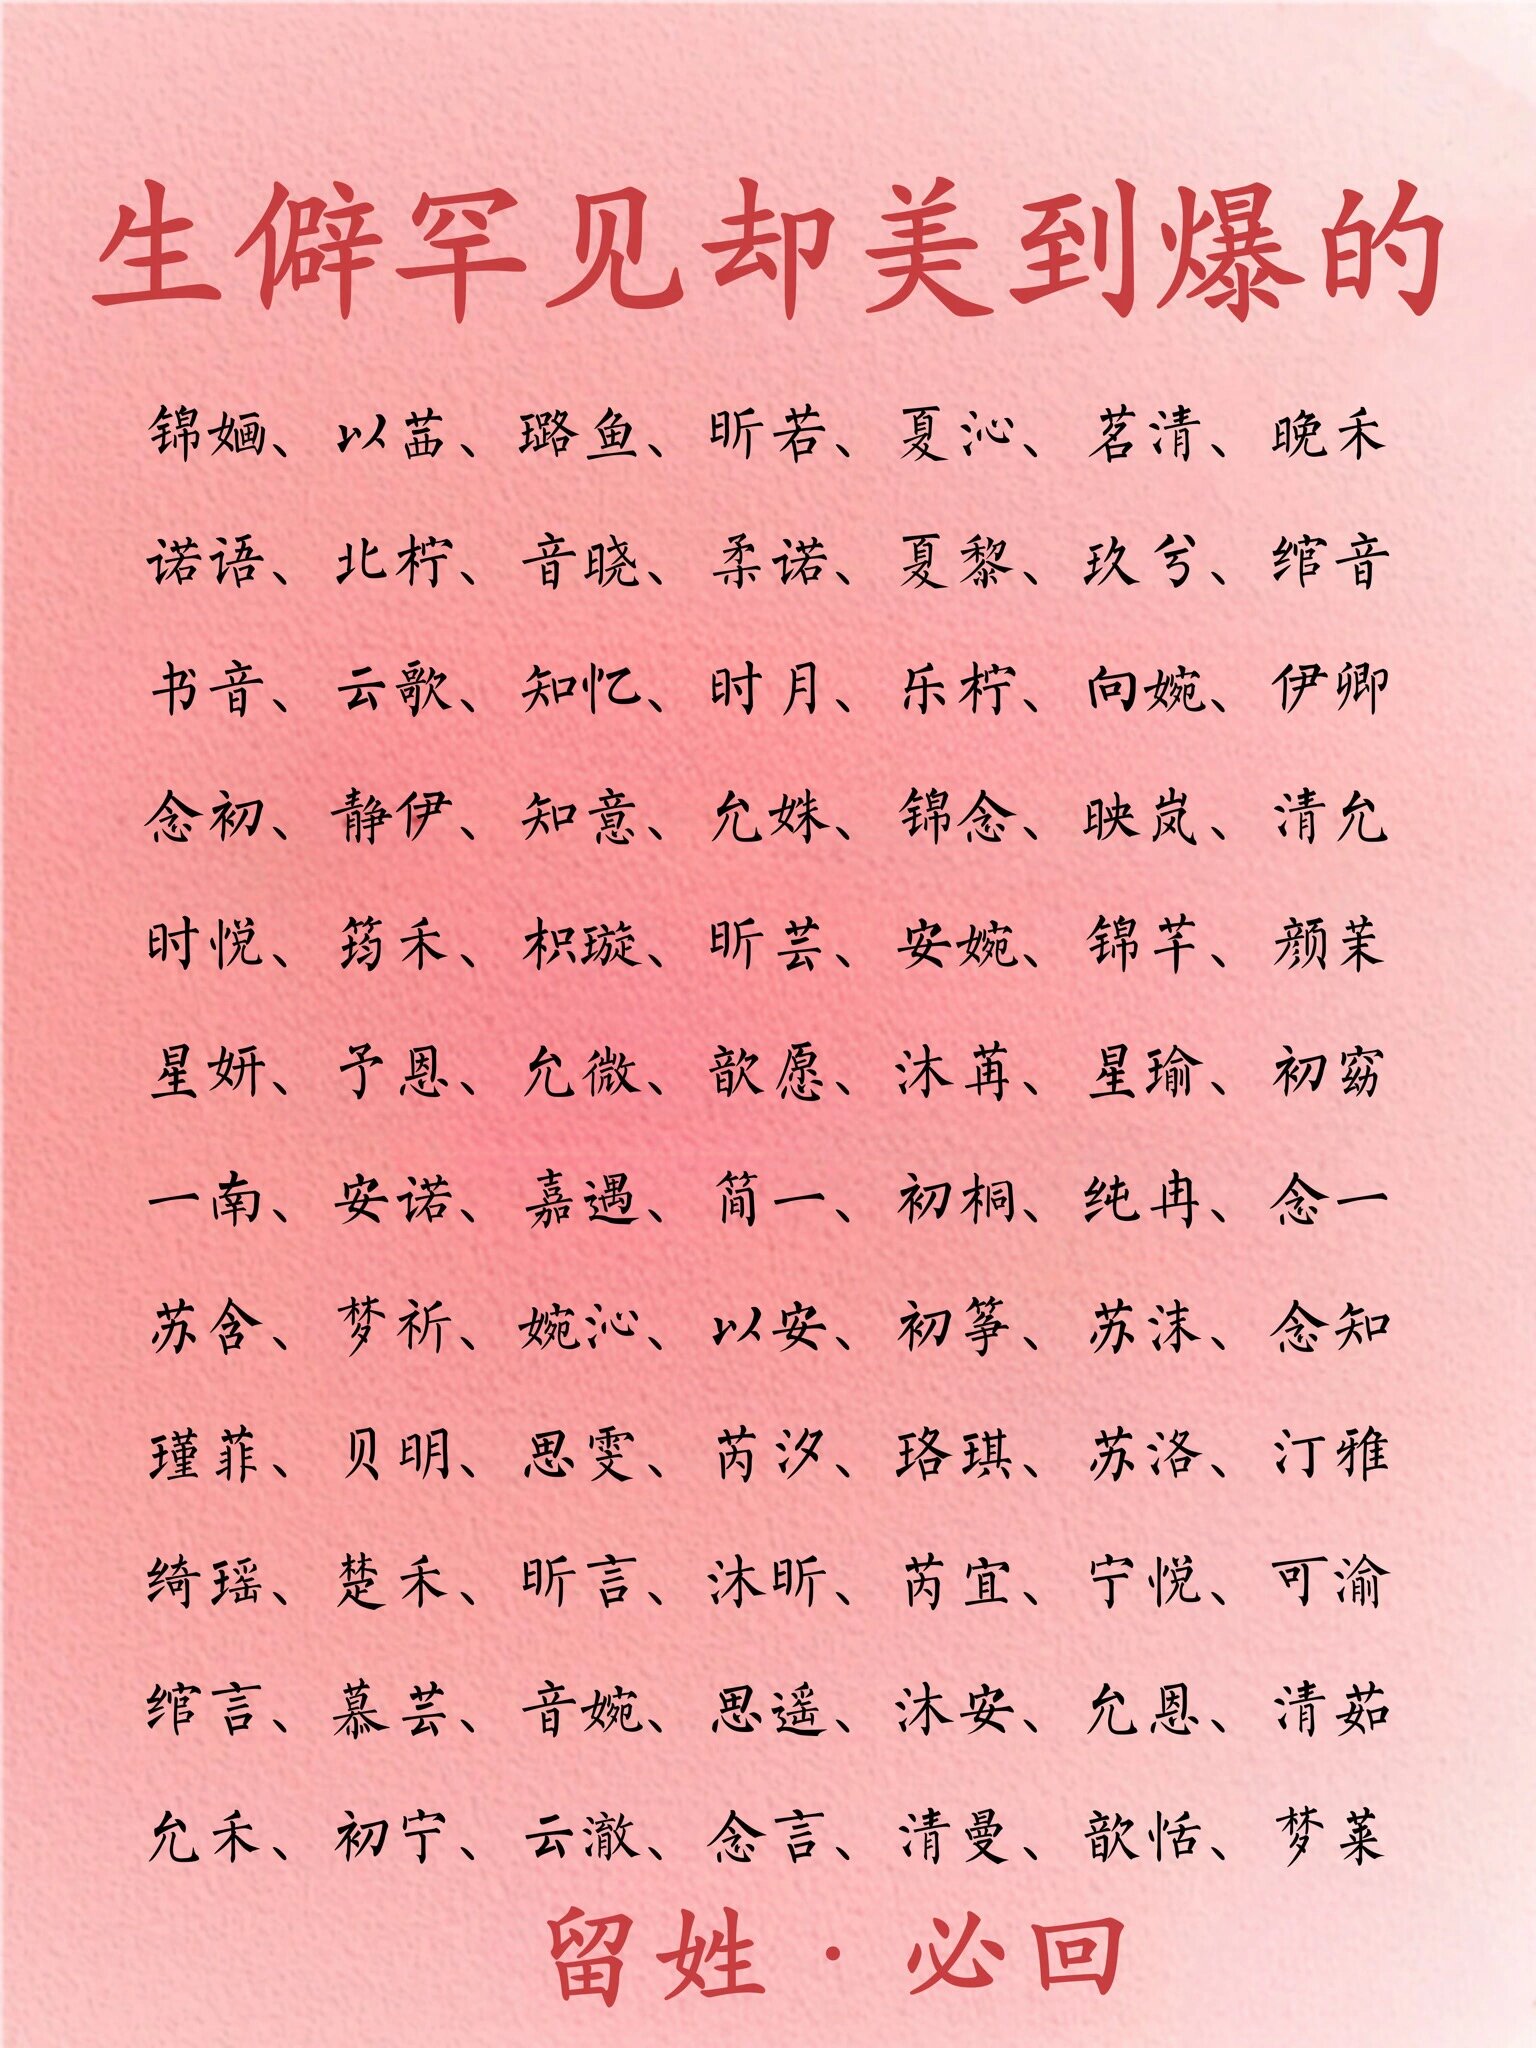 生僻罕见却美到爆的
锦婳、以茜、璐鱼、昕若、夏沁、茗清、晚禾
诺语、北柠、音晓、柔诺、夏黎、玖兮、绾音
书音、云歌、知忆、时月、乐柠、向婉、伊卿
念初、静伊、知意、允姝、锦念、映岚、清允
时悦、筠禾、枳璇、昕芸、安婉、锦芊、颜茉
星妍、予恩、允微、歆愿、沐苒、星瑜、初窈
一南、安诺、嘉遇、简一、初桐、纯冉、念一
苏含、梦祈、婉沁、以安、初筝、苏沫、念知
瑾菲、贝明、思雯、芮汐、珞琪、苏洛、汀雅
绮瑶、楚禾、昕言、沐昕、芮宜、宁悦、可渝
绾言、慕芸、音婉、思遥、沐安、允恩、清茹
允禾、初宁、云澈、念言、清曼、歆恬、梦莱
留姓·必回